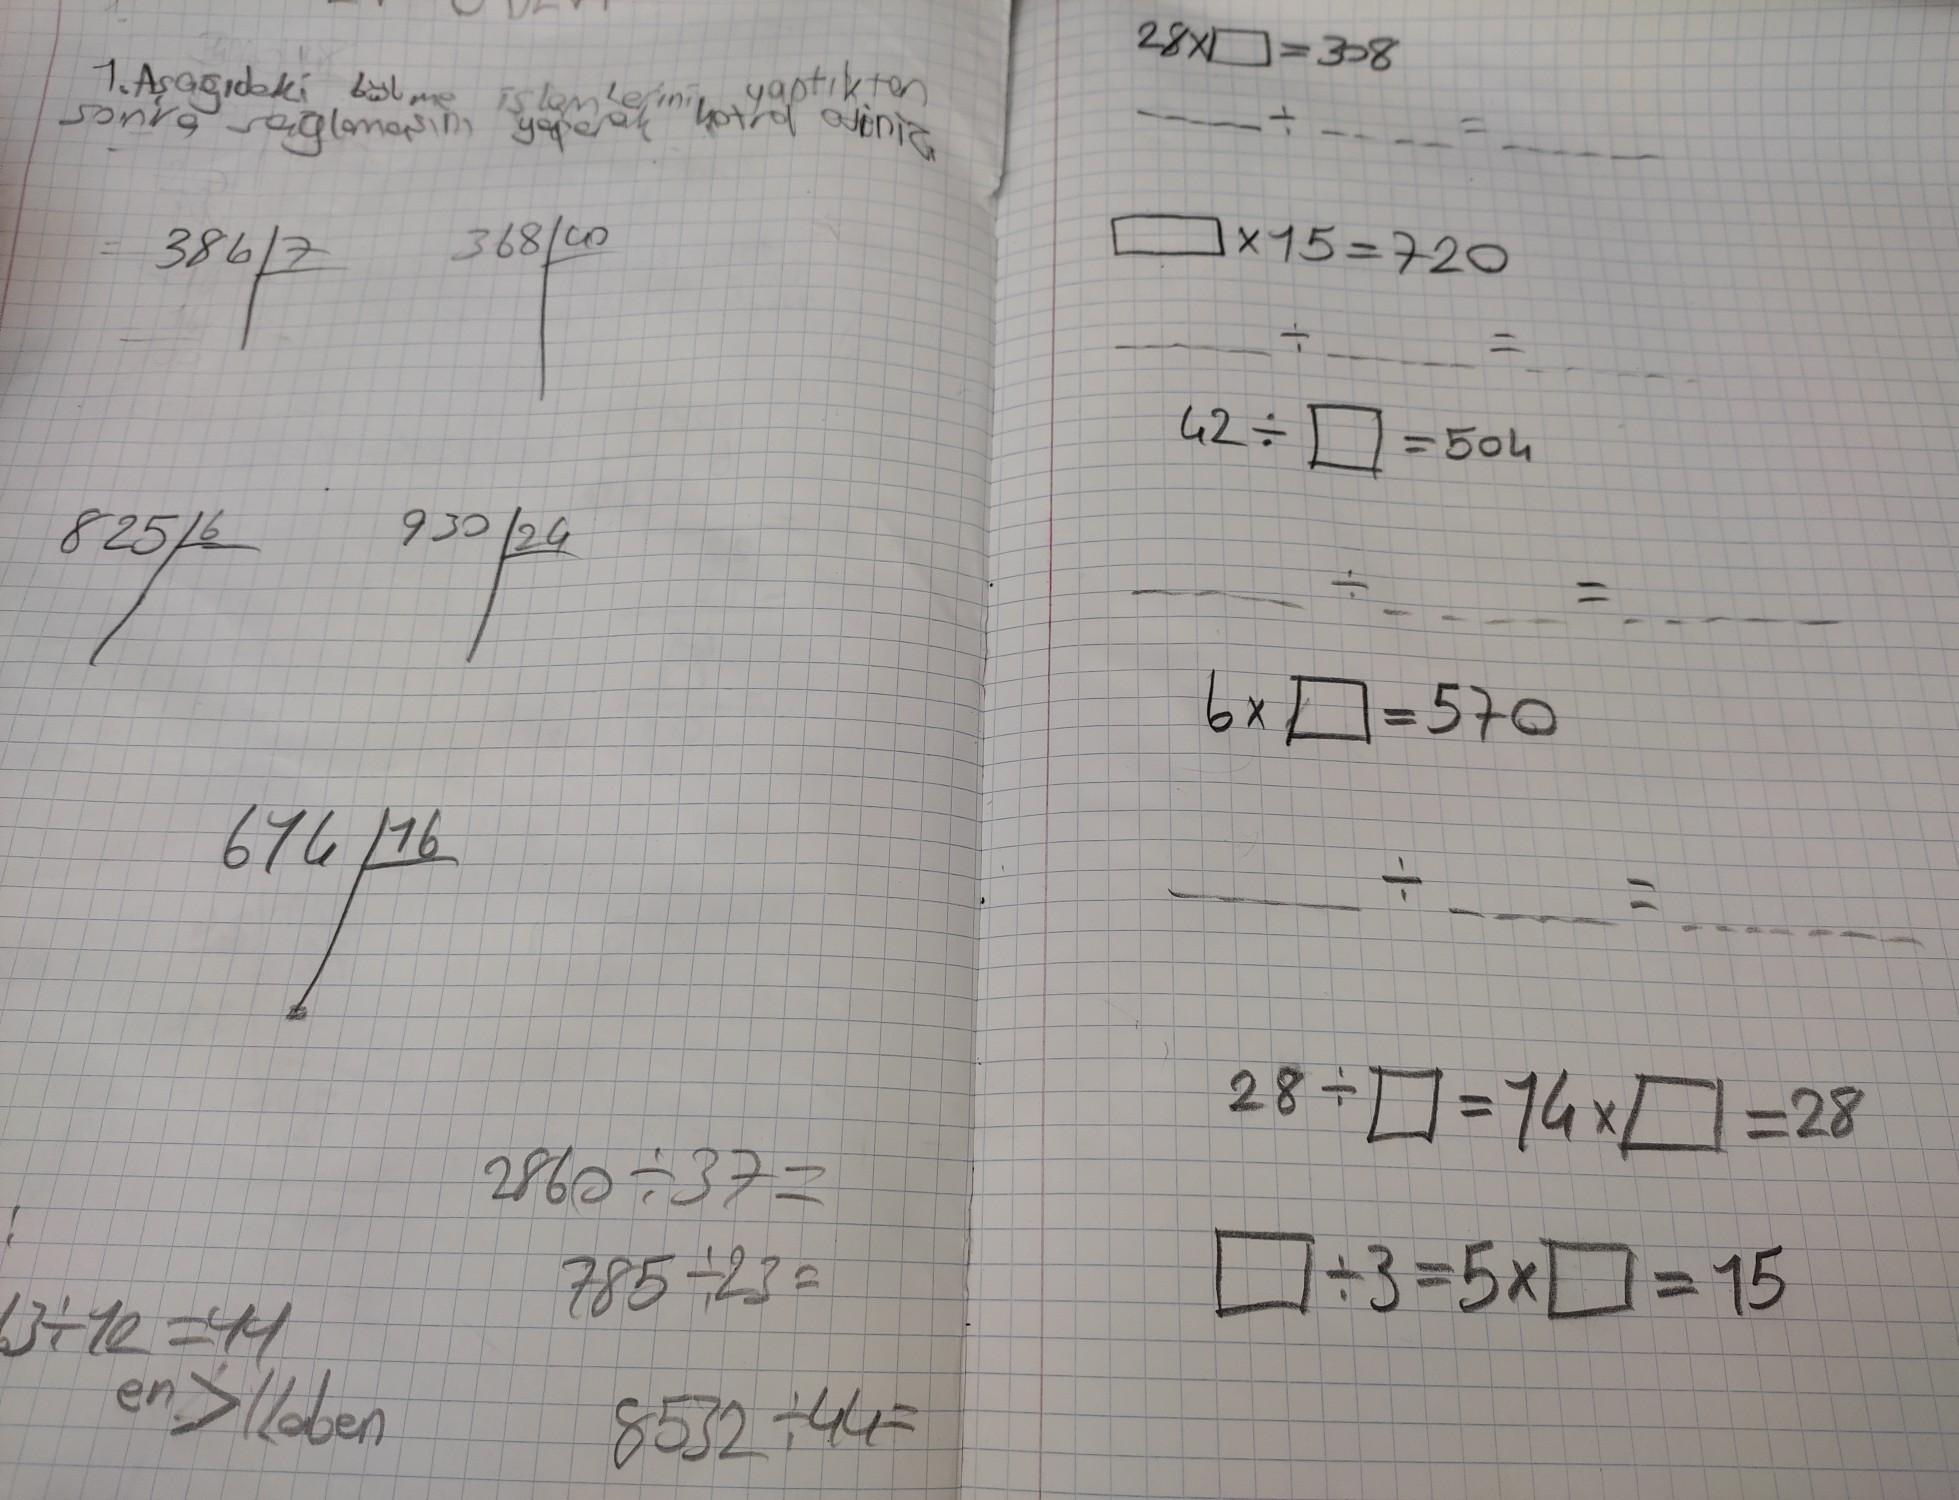 1. Aşağıdaki bölme işlemlerini yaptıktan
sonra sağlamasını yaparak kotrol ediniz.
= 386 7 368 40
825 6 930 24
674 16
2860÷37=
785÷23=
3÷10=44
en > Kaben
8532÷44=
28x□=308
÷ =
□x15=720
÷ =
42÷□=504
÷ =
6x□=570
÷ =
28÷□=14x□=28
□÷3=5x□=15